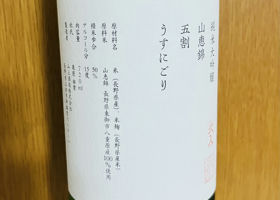 純米大吟醸
山恵錦
五割
うすにごり
原材料名 米（長野県産）米麹（長野県産米）
原料米 山恵錦 長野県東御市八重原産100%使用
精米歩合 50%
アルコール分 15度
内容量 720ml